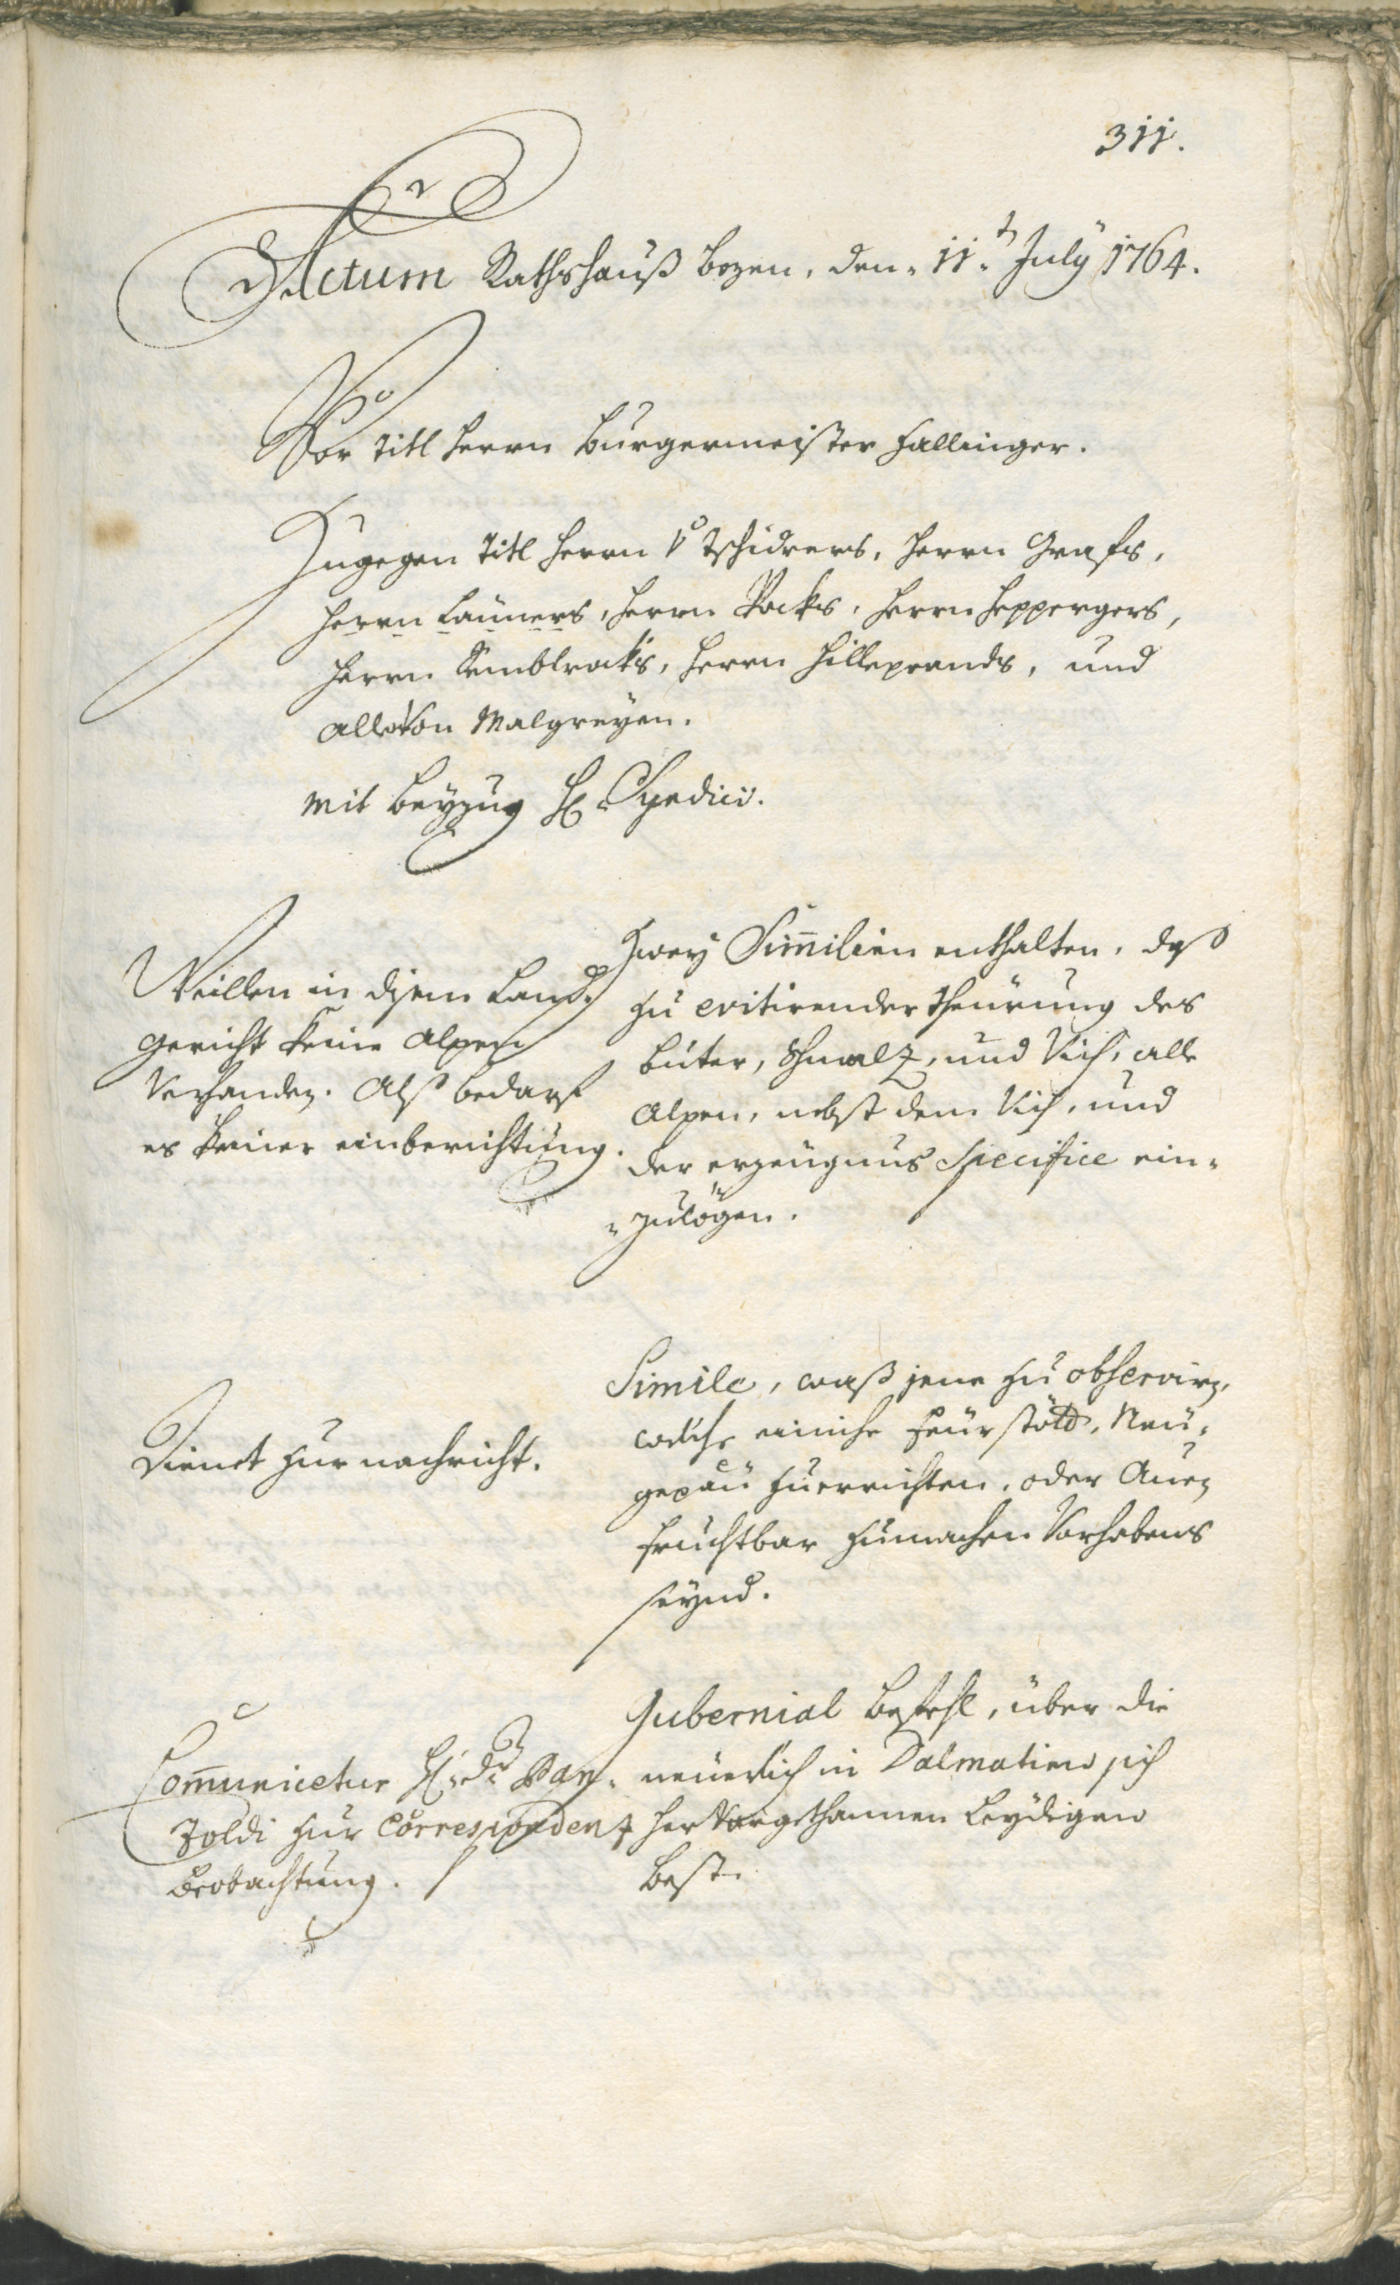 311.
Actum Rathshauß Bozen, den 11.t July 1764.
Vor titl Herrn Burgermeister Hallinger.
Zugegen titl Herrn v Tschidrers, Herrn Grafs,
Herrn Launers, Herrn Pocks, Herrn Heppergers,
Herrn Kemblrocks, Herrn Hilleprands, und
all von Malgreyen.
mit Beyzug H: Syndici.
Weillen in disem Land-
gericht keine Alpen
Verhanden. Alß bedarf
es keiner einberichtung.
Zwey Similien enthalten, daß
zu evitirender theürung des
Buter, Schmalz, und Vich, alle
Alpen, nebst dem Vich, und
der erzeugnus Specifice ein-
-zulögen.
Dienet zur nachricht.
Simile, waß jene zu observirn,
welche einiche Feürstött, Neu-
gepäu zuerrichten, oder Auen
fruchtbar zumachen Vorhabens
seynd.
Com̄unicetur H: Dr Pan-
zoldi zur Correspondenz
Beobachtung.
Gubernial Befehl, über die
neuerlich in Dalmatien sich
hervorgethannen Leydigen
Pest.